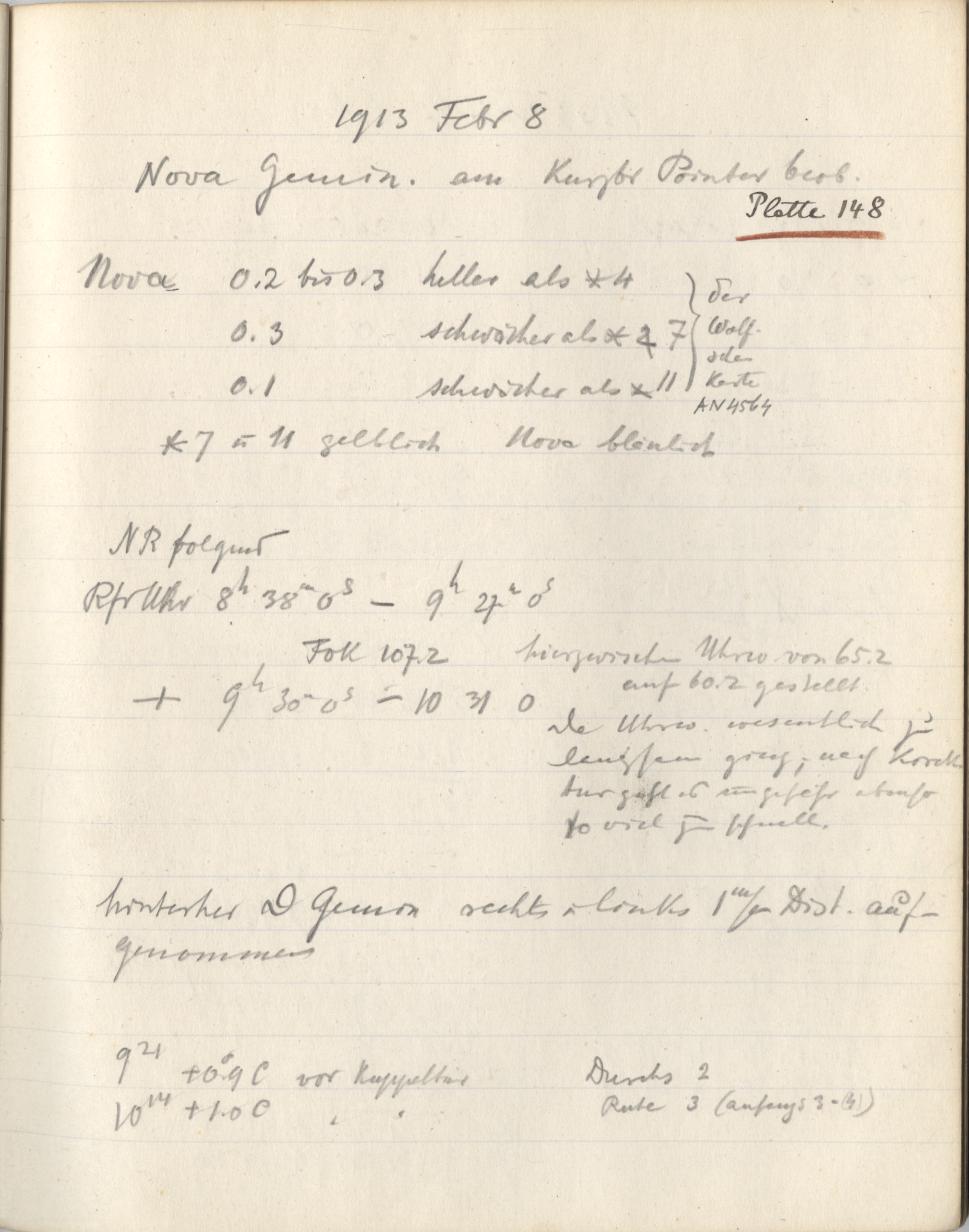 1913 Febr 8
Nova Gemin. am Kurzbr Pointer beob.
Platte 148
Nova 0.2 bis 0.3 heller als * 4
0.3 schwächer als * 7
0.1 schwächer als * 11
der
Wolf-
schen
Karte
AN 4564
* 7 u 11 gelblich Nova bläulich
NR folgend
Rfr Uhr 8h 38m 0s – 9h 27m 0s
Fok 107.2 hierzwischen Uhrw von 65.2
auf 60.2 gestellt.
+ 9h 30m 0s – 10 31 0
Da Uhrw. wesentlich zu
langsam ging, nach Korrek
tur geht es ungefähr ebenso
so viel zu schnell.
hinterher Gemin rechts u links 1 m/m Dist. auf-
genommen
9 21 +0°.9 C vor Kuppeltür
10 14 +1.0 C " "
Durchs 2
Ruhe 3 (anfangs 3-(4))